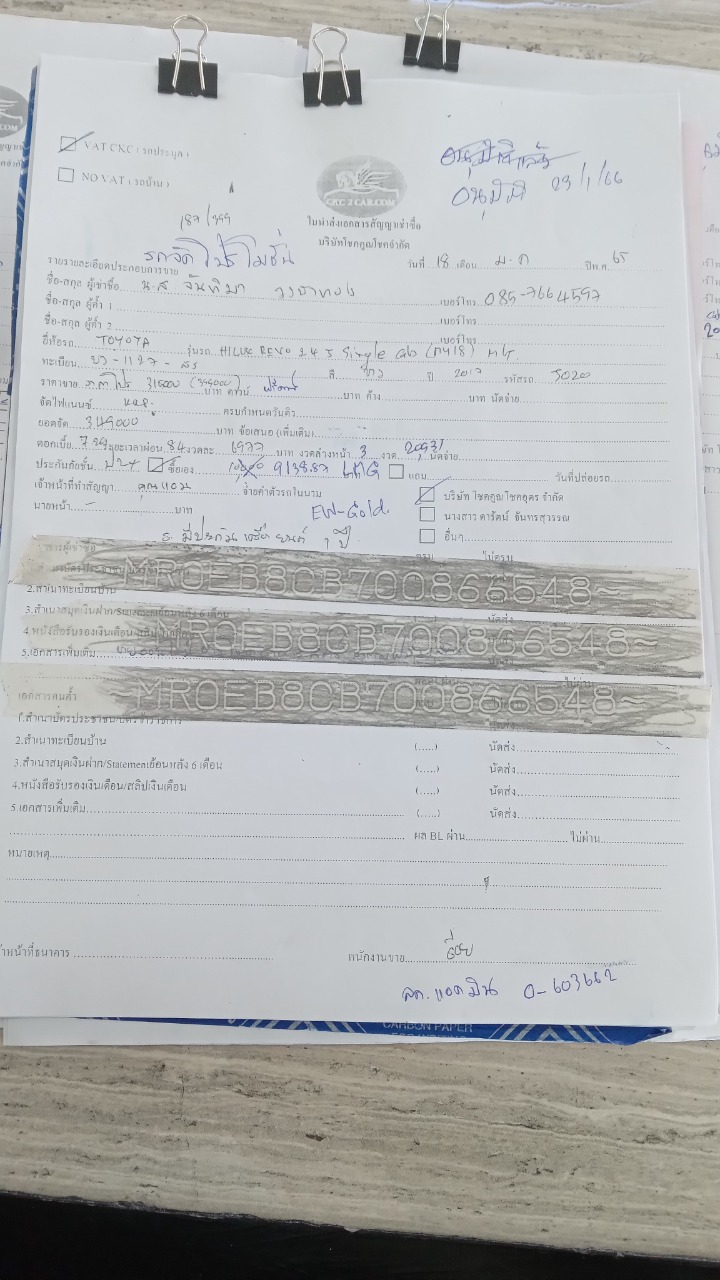 VAT CKC ( รถประมูล )
NO VAT ( รถบ้าน )
อนุมัติ 23/1/66
CKC 2 CAR.COM
187/399
ใบนำส่งเอกสารสัญญาเช่าซื้อ
บริษัทโชคคูณโชคจำกัด
รถจัดโปรโมชั่น
รายรายละเอียดประกอบการขาย วันที่ 18 เดือน ม.ค ปีพ.ศ. 65
ชื่อ-สกุล ผู้เช่าซื้อ น.ส จันทิมา เบอร์โทร 085-7664597
ชื่อ-สกุล ผู้ค้ำ 1 เบอร์โทร
ชื่อ-สกุล ผู้ค้ำ 2 เบอร์โทร
ยี่ห้อรถ TOYOTA รุ่นรถ HILUX REVO 2.4 J Single Cab (MY18) MT
ทะเบียน 1127 สี ขาว ปี 2017 รหัสรถ 5020
ราคาขาย 315000 (399000) บาท ดาวน์ ฟรีดาวน์ บาท ค้าง บาท นัดจ่าย
จัดไฟแนนซ์ ครบกำหนดวันดิว
ยอดจัด 349000 บาท ข้อเสนอ (เพิ่มเติม)
ดอกเบี้ย ระยะเวลาผ่อน 84 งวดละ 6977 บาท งวดล่างหน้า 3 งวด 20931 นัดจ่าย
ประกันภัยชั้น ป2+ ซื้อเอง 9138.87 LMG แถม วันที่ปล่อยรถ
เจ้าหน้าที่ทำสัญญา คุณแอม จ่ายค่าตัวรถในนาม บริษัท โชคคูณโชคอุดร จำกัด
นายหน้า - บาท EW-Gold. นางสาว ดารัตน์ จันทรสุวรรณ
ร. มีประกันเครื่องยนต์ 1 ปี อื่นๆ
ไม่ครบ
~MR0EB8CB700866548~
2.สำเนาทะเบียนบ้าน
3.สำเนาสมุดเงินฝาก/Statementย้อนหลัง 6 เดือน นัดส่ง
~MR0EB8CB700866548~
4.หนังสือรับรองเงินเดือน
5.เอกสารเพิ่มเติม
ไม่ผ่าน
~MR0EB8CB700866548~
เอกสารคนค้ำ
1.สำเนาบัตรประชาชน/บัตรข้าราชการ
2.สำเนาทะเบียนบ้าน (.....) นัดส่ง
3.สำเนาสมุดเงินฝาก/Statementย้อนหลัง 6 เดือน (.....) นัดส่ง
4.หนังสือรับรองเงินเดือน/สลิปเงินเดือน (.....) นัดส่ง
5.เอกสารเพิ่มเติม (.....) นัดส่ง
ผล BL ผ่าน ไม่ผ่าน
หมายเหตุ
เจ้าหน้าที่ธนาคาร พนักงานขาย
สด. แอดมิน 0-603662
CARBON PAPER